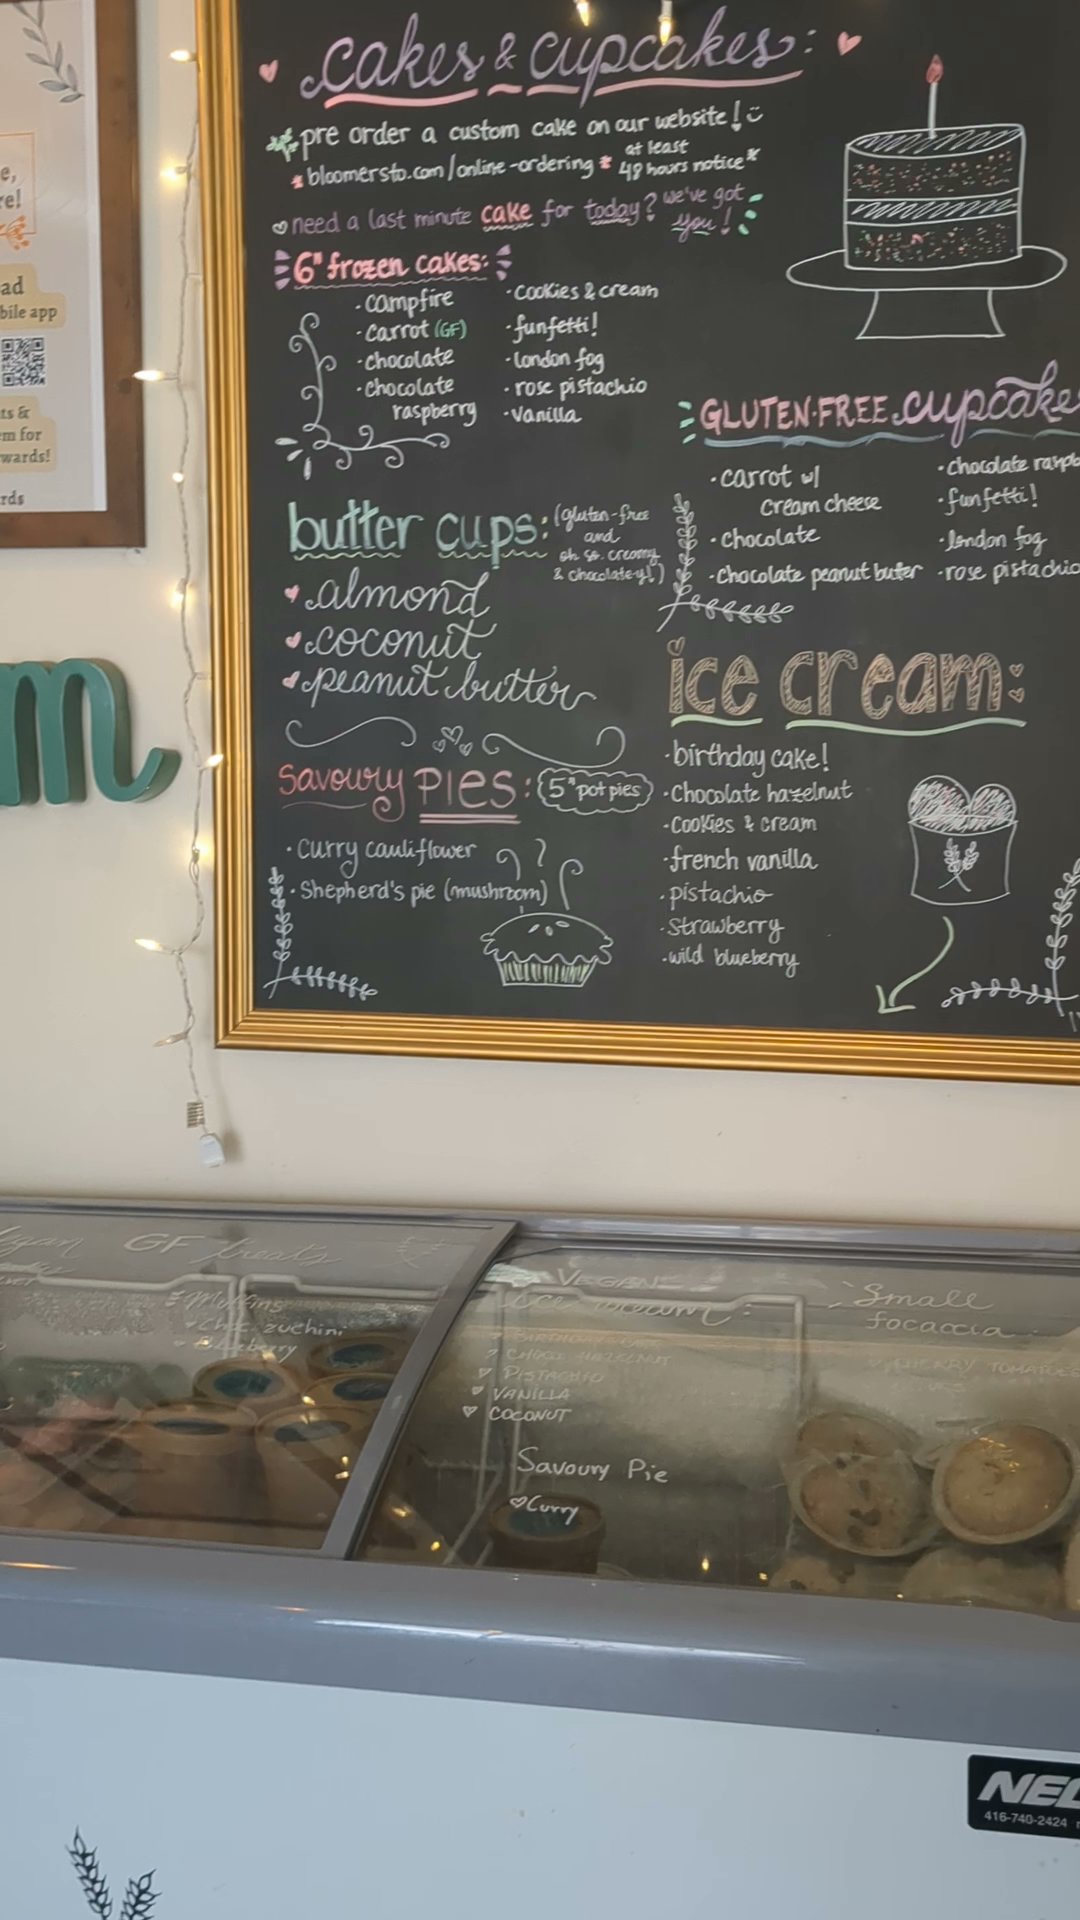 cakes & cupcakes:
pre order a custom cake on our website!
*bloomersto.com/online-ordering* at least
48 hours notice*
need a last minute cake for today? we've got
you!
6" frozen cakes:
·campfire
·carrot (GF)
·chocolate
·chocolate
raspberry
·cookies & cream
·funfetti!
·london fog
·rose pistachio
·vanilla
GLUTEN·FREE cupcakes
·carrot w/
cream cheese
·chocolate
·chocolate peanut butter
·chocolate raspb
·funfetti!
·london fog
·rose pistachio
butter cups: (gluten-free
and
oh so creamy
& chocolate-y!)
almond
coconut
peanut butter
savoury PIES: 5" pot pies
·curry cauliflower
·Shepherd's pie (mushroom)
ice cream:
·birthday cake!
·chocolate hazelnut
·cookies & cream
·french vanilla
·pistachio
·strawberry
·wild blueberry
e,
re!
ad
bile app
ts &
m for
wards!
rds
m
GF treats
Muffins
Choc zuchini
VEGAN
ice cream:
CHOCO HAZELNUT
PISTACHIO
VANILLA
COCONUT
Savoury Pie
Curry
Small
focaccia
CHERRY TOMATOES
416-740-2424